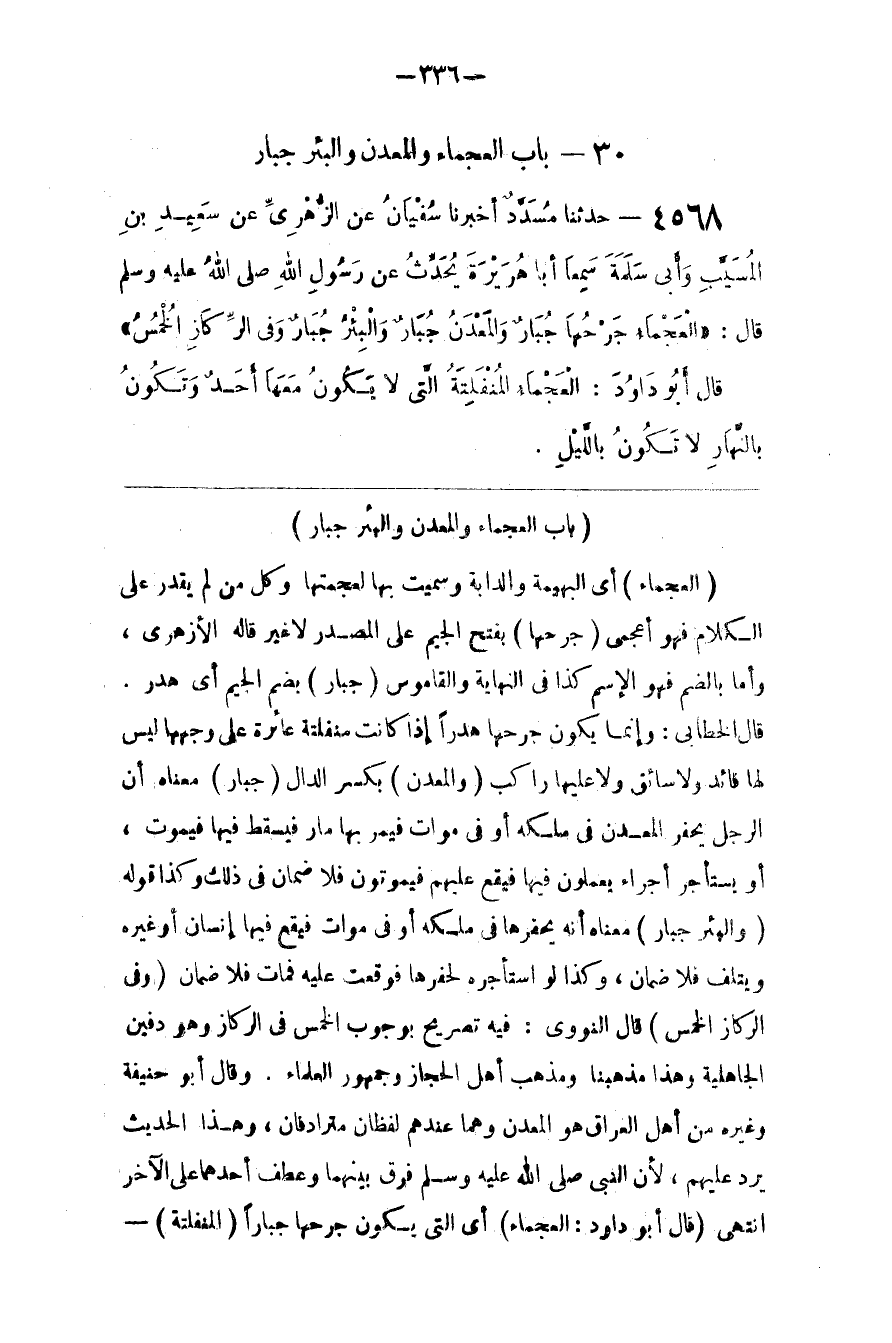 —٣٣٦—
٣٠ — باب العجماء والمعدن والبئر جبار
٤٥٦٨ — حدثنا مُسَدَّدٌ أخبرنا سُفْيَانُ عن الزُّهْرِىِّ عن سَعِيـدِ بنِ
المُسَيَّبِ وَأَبى سَلَمَةَ سَمِعَا أبا هُرَيْرَةَ يُحَدِّثُ عن رَسُولِ اللهِ صلى اللهُ عليه وسلم
قال : «الْعَجْمَاءِ جَرْحُهَا جُبَارٌ وَالمَعْدَنُ جُبَارٌ وَالْبِئْرُ جُبَارٌ وَفى الرِّكَازِ الْخُمْسُ»
قال أَبُو دَاوُدَ : الْعَجْمَاءِ المُنْفَلِتَةُ الَّتى لا يَكُونُ مَعَهَا أَحَدٌ وَتَكُونُ
بالنَّهَارِ لا تَكُونُ باللَّيْلِ .
( باب العجماء والمعدن والبئر جبار )
( العجماء ) أى البهيمة والدابة وسميت بها لعجمتها وكل من لم يقدر على
الكلام فهو أعجمى ( جرحها ) بفتح الجيم على المصدر لاغير قاله الأزهرى ،
وأما بالضم فهو الإسم كذا فى النهاية والقاموس ( جبار ) بضم الجيم أى هدر .
قال الخطابى : وإنما يكون جرحها هدراً إذا كانت منفلتة عائرة على وجهها ليس
لها قائد ولاسائق ولاعليها راكب ( والمعدن ) بكسر الدال ( جبار ) معناه أن
الرجل يحفر المعدن فى ملكه أو فى موات فيمر بها مار فيسقط فيها فيموت ،
أو يستأجر أجراء يعملون فيها فيقع عليهم فيموتون فلا ضمان فى ذلك وكذا قوله
( والبئر جبار ) معناه أنه يحفرها فى ملكه أو فى موات فيقع فيها إنسان أوغيره
ويتلف فلا ضمان ، وكذا لو استأجره لحفرها فوقعت عليه فمات فلا ضمان ( وفى
الركاز الخمس ) قال النووى : فيه تصريح بوجوب الخمس فى الركاز وهو دفين
الجاهلية وهذا مذهبنا ومذهب أهل الحجاز وجمهور العلماء . وقال أبو حنيفة
وغيره من أهل العراق هو المعدن وهما عندهم لفظان مترادفان ، وهذا الحديث
يرد عليهم ، لأن النبى صلى الله عليه وسلم فرق بينهما وعطف أحدهما على الآخر
انتهى ( قال أبو داود : العجماء) أى التى يكون جرحها جباراً ( المنفلتة ) —